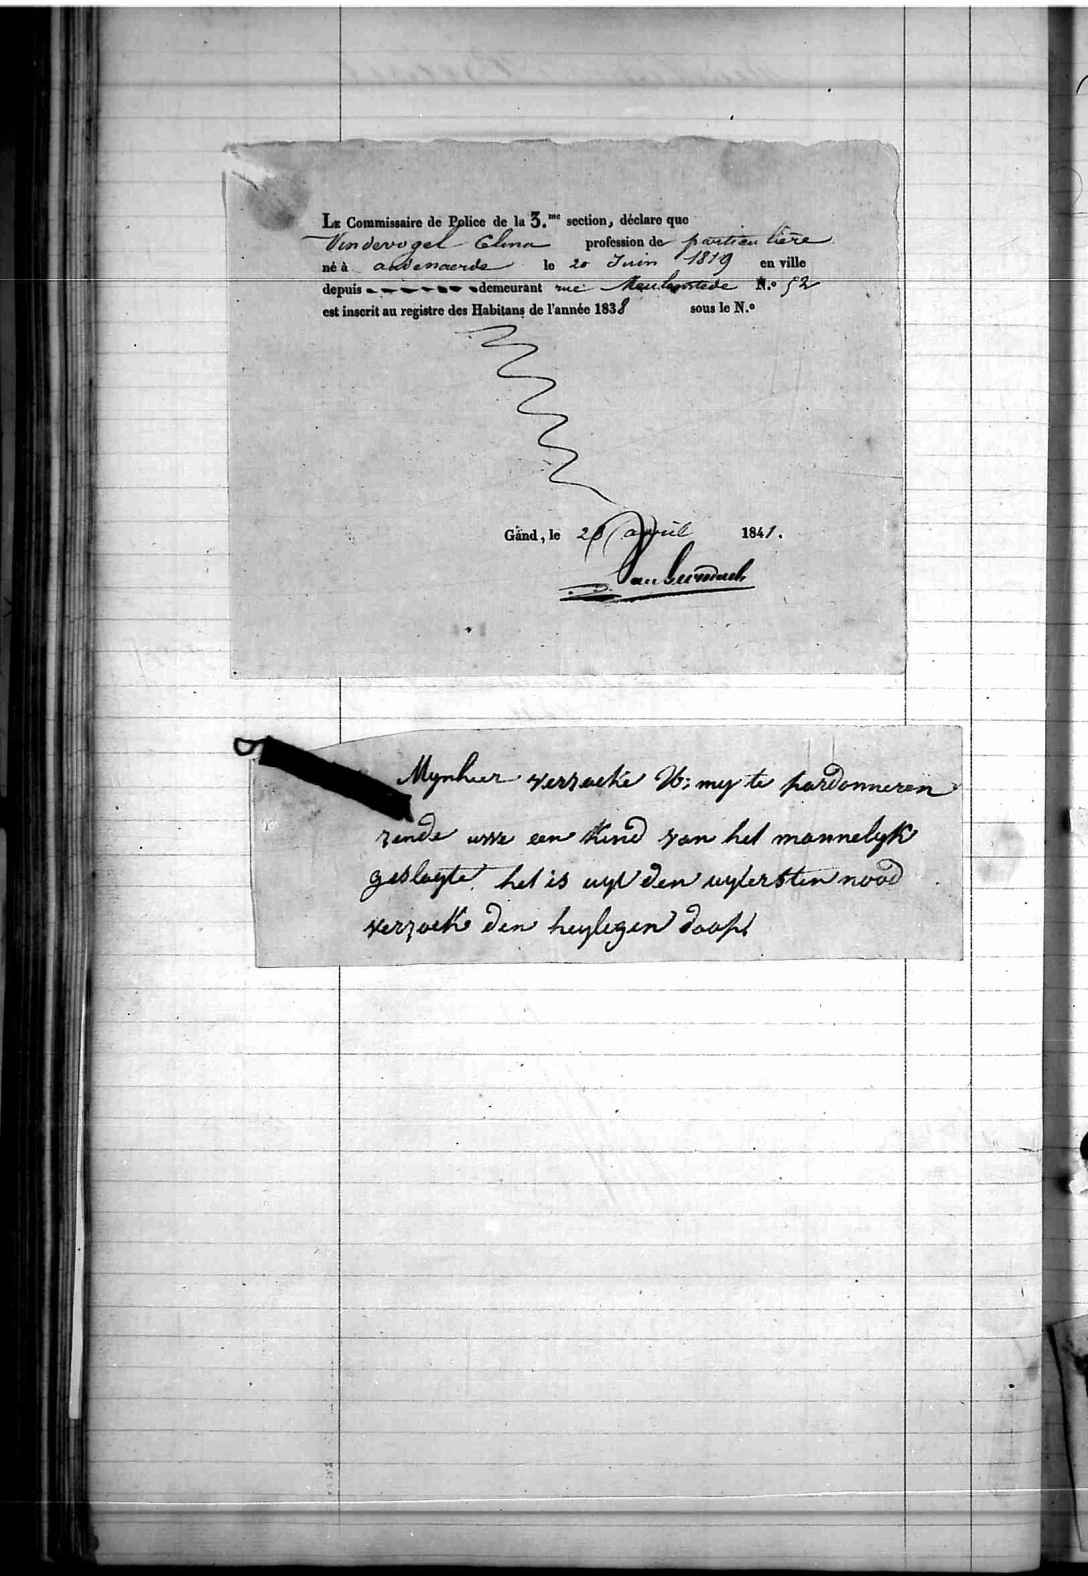 LE Commissaire de Police de la 3.me section, déclare que
Vindevogel Elina profession de particulière
né à audenaerde le 20 Juin 1819 en ville
depuis demeurant rue Meulestede N.o 52
est inscrit au registre des Habitans de l'année 1838 sous le N.o
Gand, le 28 avril 1841.
Mynheer verzoeke U: my te pardonneren
zende uwe een kind van het mannelyk
geslagte het is uyt den uytersten nood
verzoek den heylegen doop